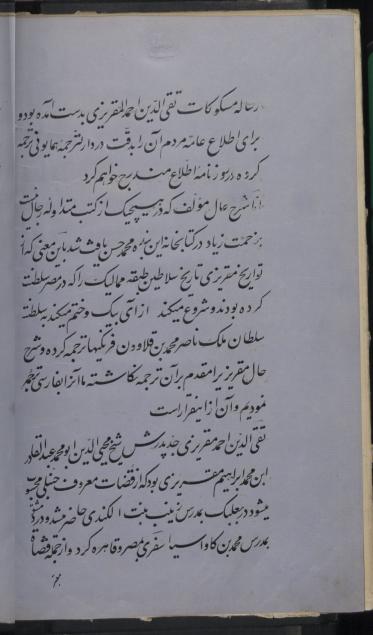 رساله مسکوکات تقی الدین احمد المقریزی بدست آمده بود و
برای اطلاع عامه مردم آن را بدقت در دار الترجمه همایونی ترجمه
کرده در روزنامه اطلاع مندرج خواهیم کرد
اما شرح حال مؤلف که در هیچیک از کتب متداوله حالیه نیست
بزحمت زیاد در کتابخانه این بنده محمد حسن یافت شد باین معنی که از
تواریخ مقریزی تاریخ سلاطین طبقه ممالیک را که در مصر سلطنت
کرده بودند و شروع میکند از آی بیک و ختم میکند به سلطنت
سلطان ملک ناصر محمد بن قلاودن فرنگیها ترجمه کرده و شرح
حال مقریزی را مقدم بر آن ترجمه نگاشته ما آنرا بفارسی ترجمه
نمودیم و آن از اینقرار است
تقی الدین احمد مقریزی جد پدرش شیخ محیی الدین ابو محمد عبد القادر
ابن محمد ابراهیم مقریزی بود که از قضات معروف حنبلی محسوب
میشود در بعلبک بمدرس زینب بنت الکندی حاضر میشد و در دمشق
بمدرس محمد بن کاواسیا سفری بمصر و قاهره کرد و از جمله قضاة